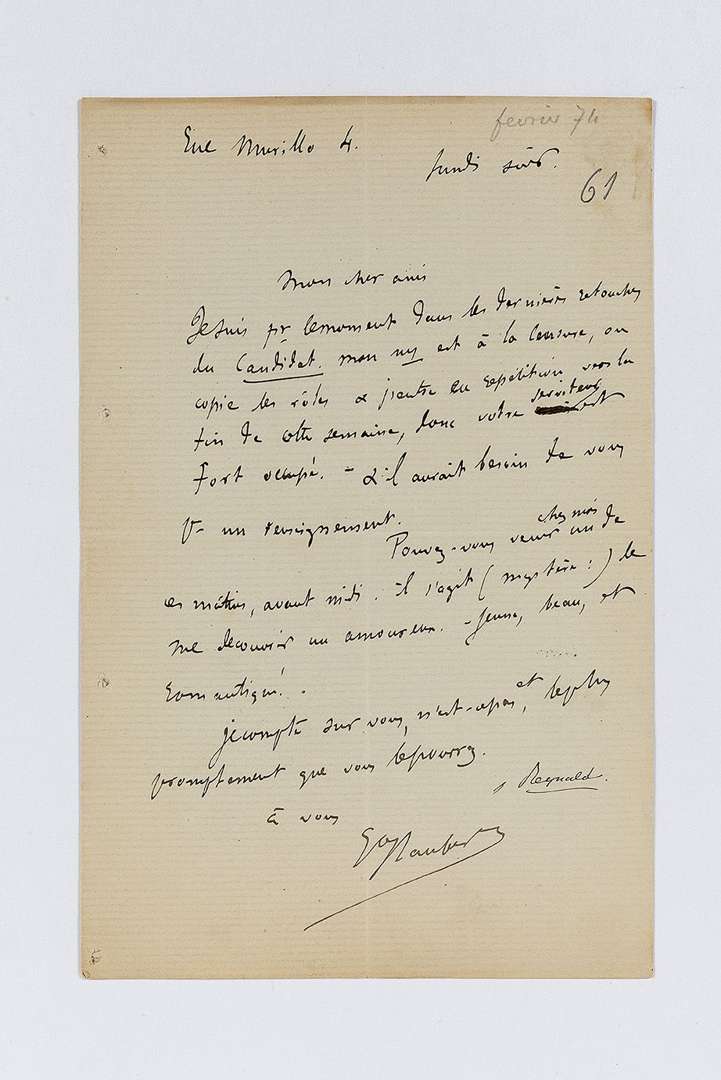 février 74
Rue Murillo 4.
lundi soir.
61
Mon cher ami
Je suis pr le moment dans les dernières retouches
du Candidat. mon ms est à la Censure, on
copie les rôles & j'entre en répétition vers la
fin de cette semaine, donc votre serviteur est
fort occupé. – & il aurait besoin de vous
pr un renseignement.
Pouvez-vous venir chez moi un de
ces matins, avant midi. Il s'agit (mystère!) de
me découvrir un amoureux. – Jeune, beau, et
romantique!
je compte sur vous, n'est-ce pas, et le plus
promptement que vous le pourrez.
à vous
Reynald.
Gve Flaubert